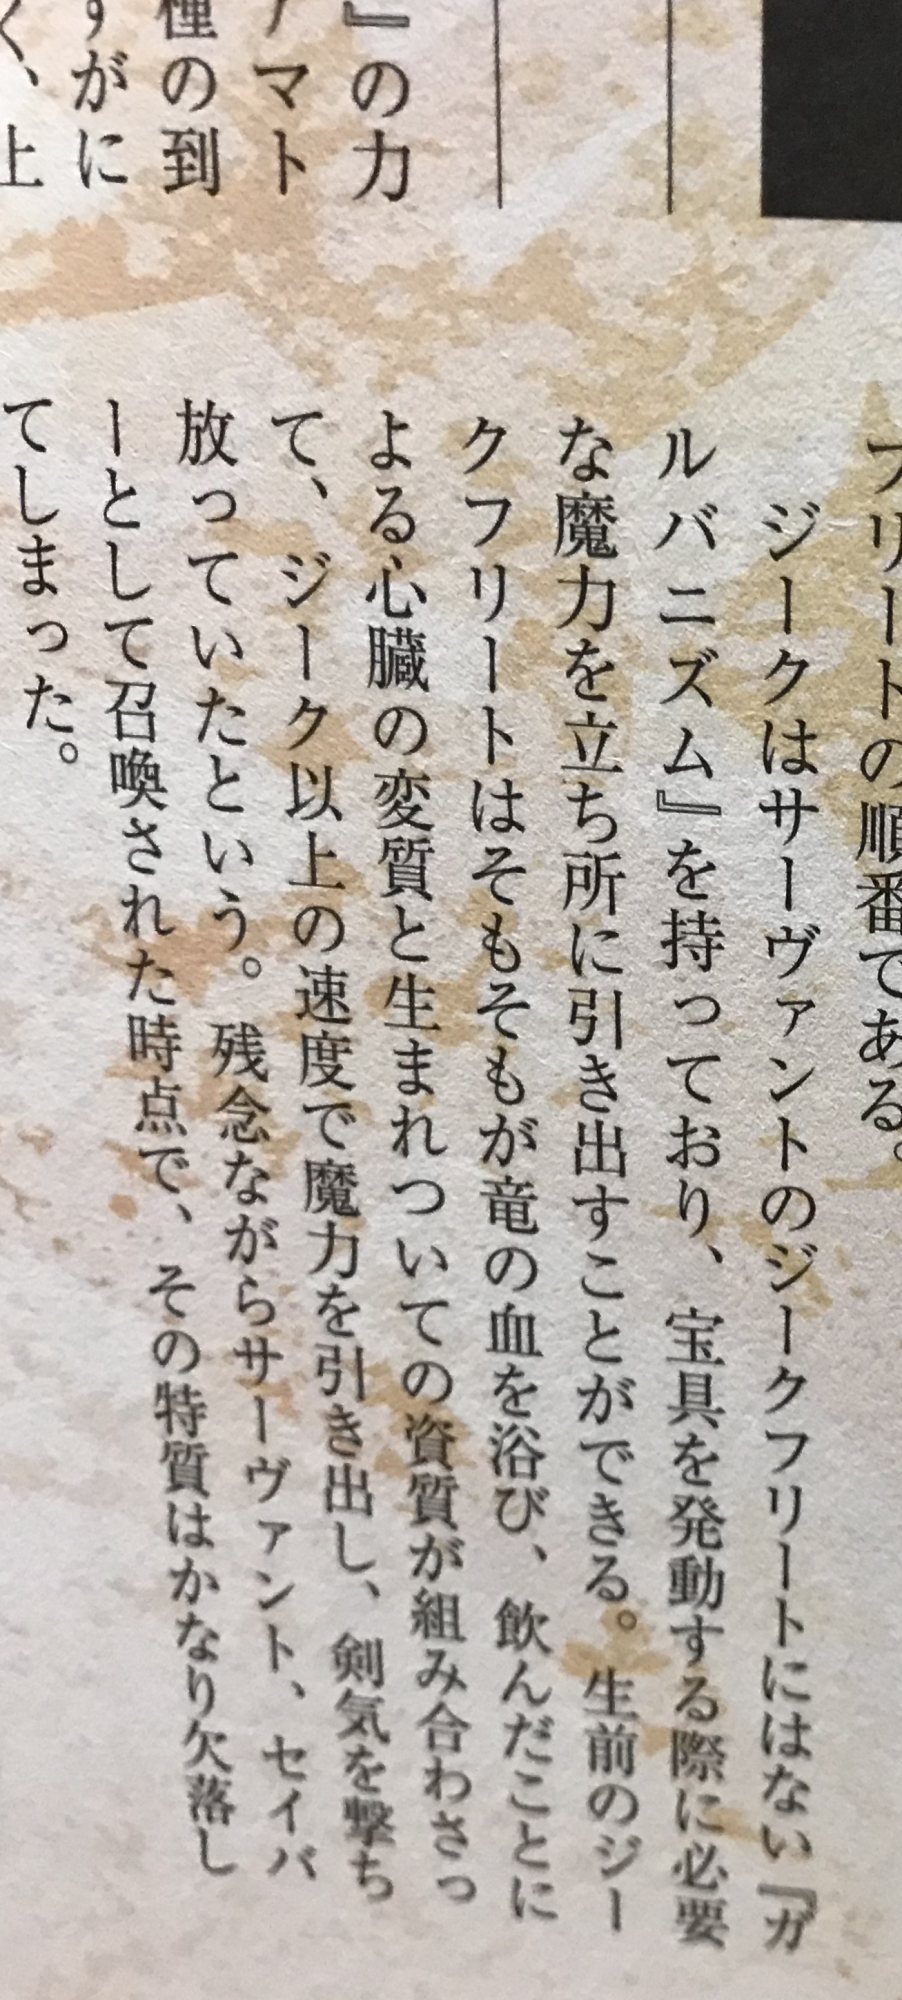 フリートの順番である。
ジークはサーヴァントのジークフリートにはない『ガ
ルバニズム』を持っており、宝具を発動する際に必要
な魔力を立ち所に引き出すことができる。生前のジー
クフリートはそもそもが竜の血を浴び、飲んだことに
よる心臓の変質と生まれついての資質が組み合わさっ
て、ジーク以上の速度で魔力を引き出し、剣気を撃ち
放っていたという。残念ながらサーヴァント、セイバ
ーとして召喚された時点で、その特質はかなり欠落し
てしまった。
』の力
マト
種の到
すがに
く、上